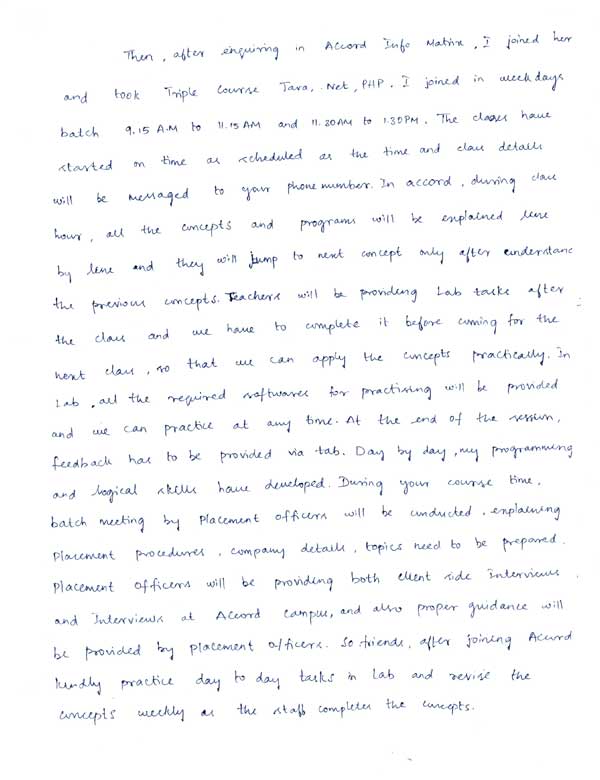 Then, after enquiring in Accord Info Matrix, I joined here
and took Triple Course Java, .Net, PHP. I joined in weekdays
batch 9.15 A.M to 11.15 AM and 11.30AM to 1.30PM. The classes have
started on time as scheduled as the time and class details
will be messaged to your phone number. In accord, during class
hour, all the concepts and programs will be explained line
by line and they will jump to next concept only after understand
the previous concepts. Teachers will be providing Lab tasks after
the class and we have to complete it before coming for the
next class, so that we can apply the concepts practically. In
Lab, all the required softwares for practising will be provided
and we can practice at any time. At the end of the session,
feedback has to be provided via tab. Day by day, my programming
and logical skills have developed. During your course time,
batch meeting by Placement officers will be conducted, explaining
Placement procedures, company details, topics need to be prepared.
Placement officers will be providing both client side Interviews
and Interviews at Accord campus, and also proper guidance will
be provided by placement officers. So friends, after joining Accord
kindly practice day to day tasks in Lab and revise the
concepts weekly as the staff completes the concepts.